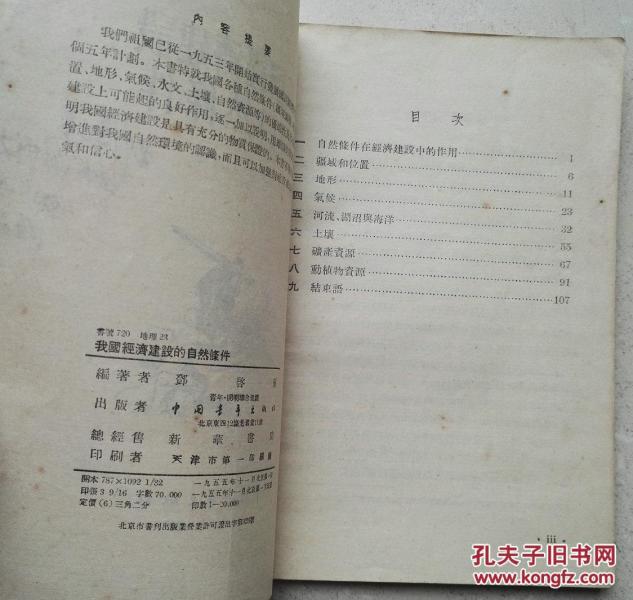 內容提要
我們祖國已從一九五三年開始實行
個五年計劃。本書特就我國各種自然條件
置、地形、氣候、水文、土壤、自然資源等)
建設上可能起的良好作用,逐一加以說明,
明我國經濟建設是具有充分的物質保證的。
增進對我國自然環境的認識,而且可以加强
氣和信心。
書號720 地理23
我國經濟建設的自然條件
編著者 鄧啓
青年·開明聯合組織
出版者 中國青年出版社
北京東四12條老君堂11號
總經售 新華書店
印刷者 天津市第一印刷廠
開本787×1092 1/32
印張3 9/16 字數70,000
定價(6)三角二分
一九五五年十一月北京第一版
一九五五年十一月北京第一次印刷
印數1—20,000
北京市書刊出版業營業許可證出字第036號
目次
一 自然條件在經濟建設中的作用 1
二 疆域和位置 6
三 地形 11
四 氣候 23
五 河流、湖沼與海洋 32
六 土壤 55
七 礦產資源 67
八 動植物資源 91
九 結束語 107
· iii ·
孔夫子旧书网
www.kongfz.com